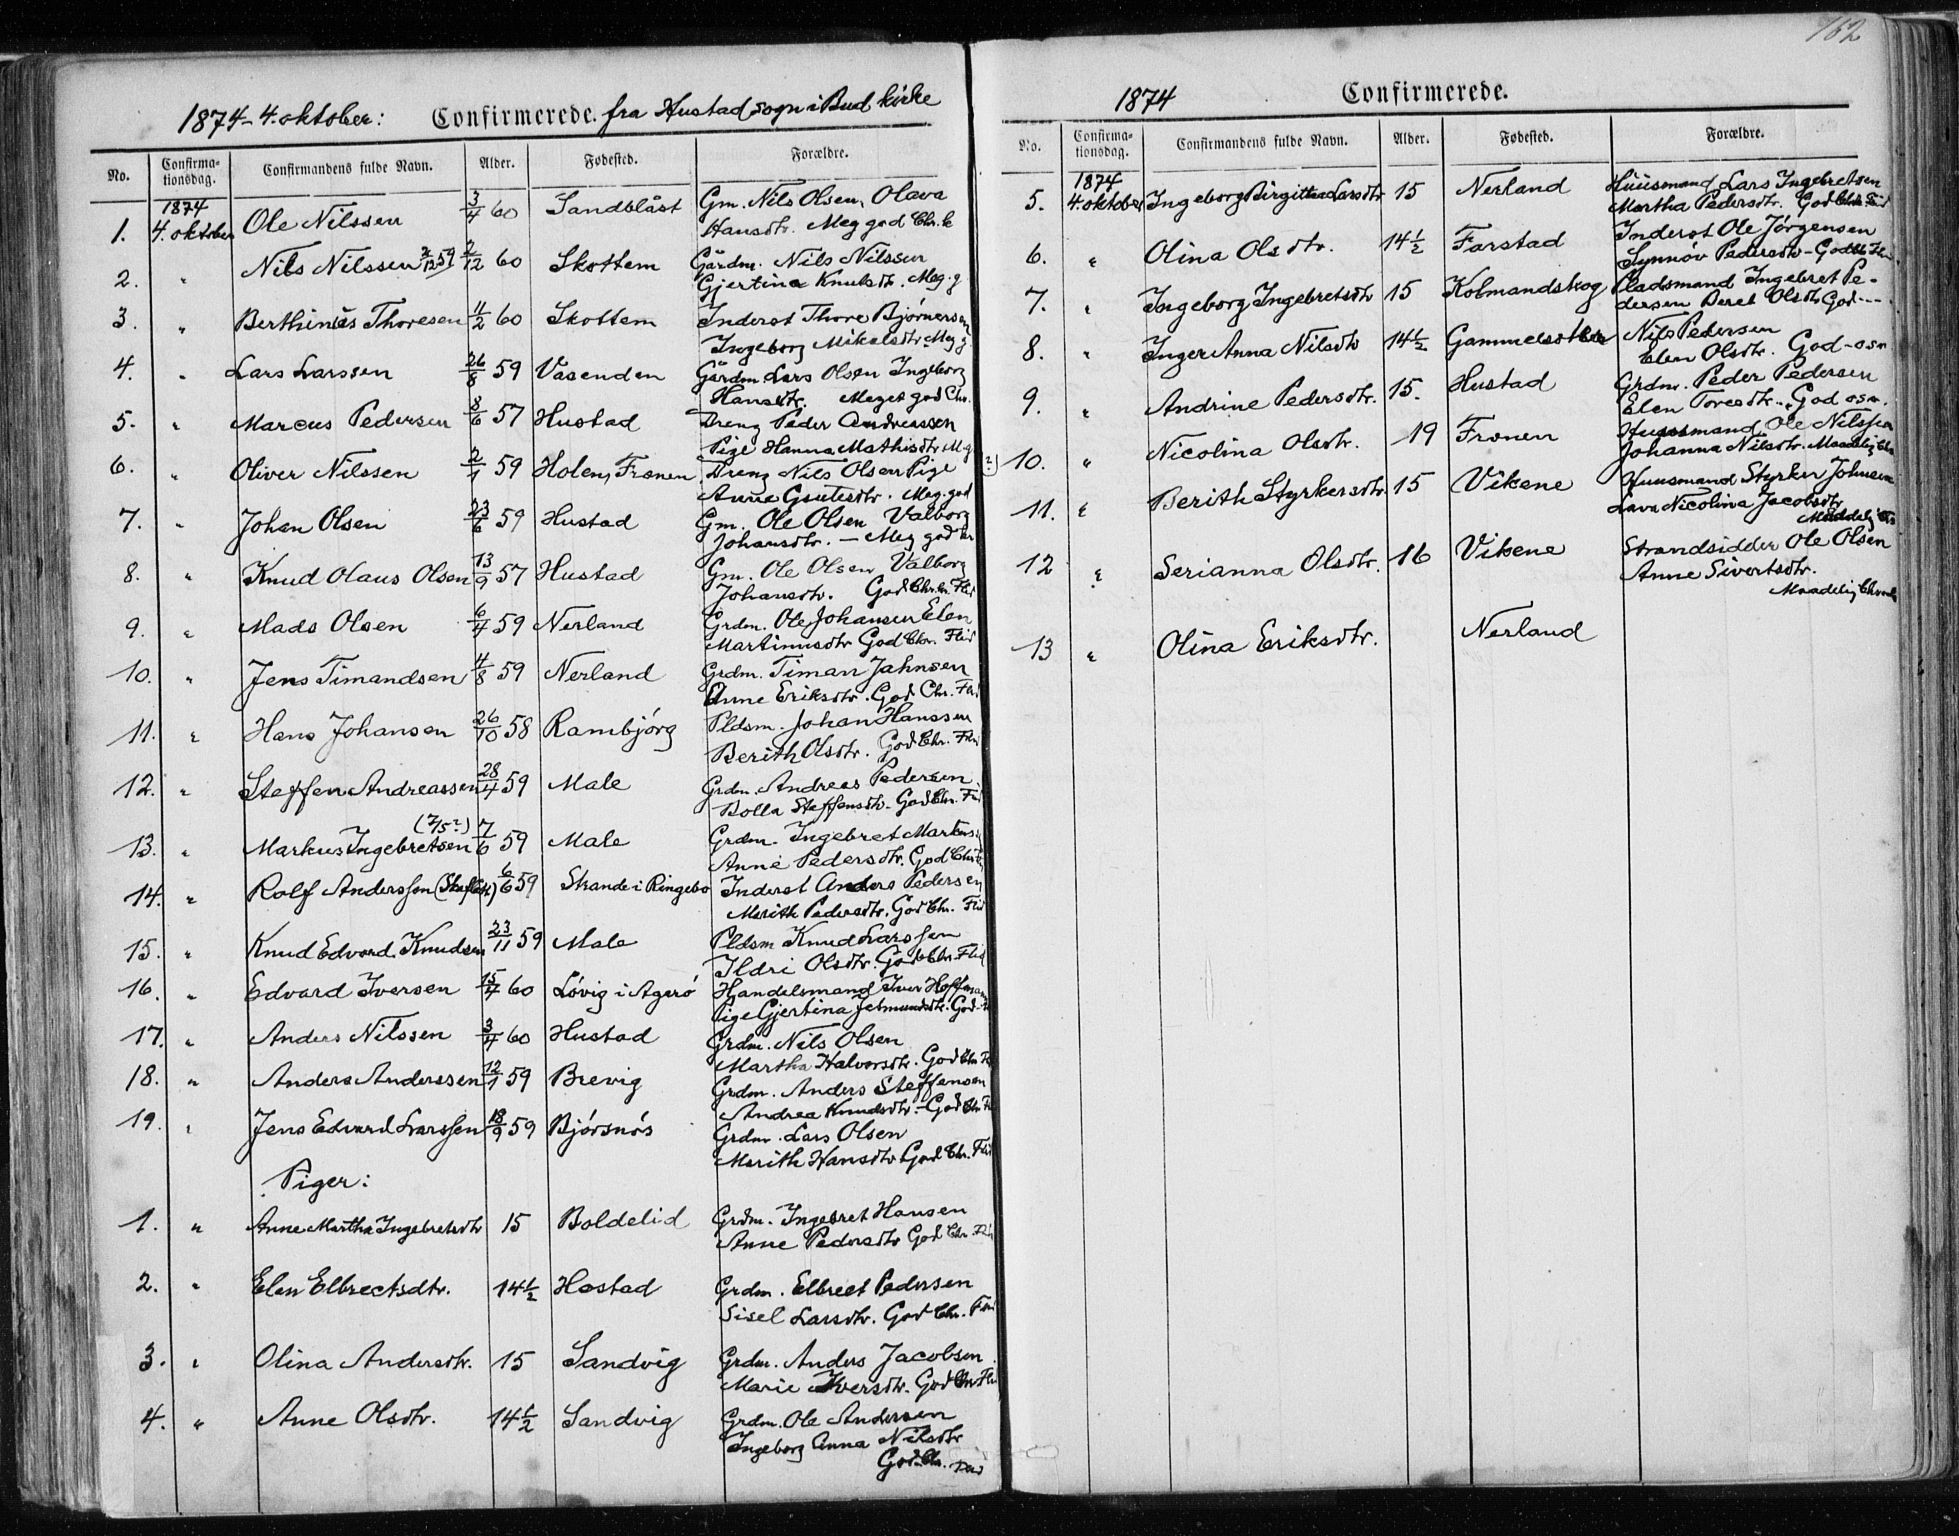 1874 - 4. oktober: Confirmerede. fra Hustad sogn i Bud kirke
No. Confirma-tionsdag. Confirmandens fulde Navn. Alder. Fødested. Forældre.
1874
1. 4. oktober Ole Nilssen 3/4 60 Sandblåst Gm. Nils Olsen, Olava
Hansdtr. Meg god Chr. k
2. " Nils Nilssen 2/12 59 2/12 60 Skottem Gårdm. Nils Nilssen
Gjertina Knutsdtr. Meg. g
3. " Berthinius Thoresen 11/2 60 Skottem Inderst Thore Bjørnersen
Ingeborg Mikalsdtr. Meg g
4. " Lars Larssen 26/8 59 Våsenden Gårdm Lars Olsen Ingeborg
Hansdtr. Meget god Chr.
5. " Marcus Pedersen 8/6 57 Hustad Dreng Peder Andreassen
Pige Hanna Mathisdtr. M g
6. " Oliver Nilssen 2/1 59 Holen, Frænen Dreng Nils Olsen Pige
Anne Gsutesdtr. Meg. god
7. " Johan Olsen 23/6 59 Hustad Gm. Ole Olsen Valborg
Johansdtr. — Meg god
8. " Knud Olaus Olsen 13/9 57 Hustad Gm. Ole Olsen Valborg
Johansdtr. God Chr. Flid
9. " Mads Olsen 6/4 59 Nerland Grdm. Ole Johansen Elen
Martinusdtr God Chr. Flid
10. " Jens Timandsen 4/8 59 Nerland Grdm. Timan Jahnsen
Anne Eriksdtr. God Chr. Flid
11. " Hans Johansen 26/10 58 Rambjørg Pldsm. Johan Hanssen
Berith Olsdtr. God Chr. Flid
12. " Steffen Andreassen 28/4 59 Male Grdm. Andreas Pedersen
Bolla Steffensdtr. God Chr. Flid
(7/5?)
13. " Markus Ingebretsen 7/6 59 Male Grdm. Ingebret Martens
Anne Pedersdtr. God Chr.
14. " Rolf Anderssen 6/6 59 Strande i Ringebo Inderst Anders Pedersen
Marith Pedersdtr. God Chr. Flid
15. " Knud Edvard Knudsen 23/11 59 Male Pldsm Knud Larssen
Ildri Olsdtr. God Chr. Flid
16. " Edvard Iversen 15/4 60 Løvig i Agerø Handelsmand Iver Hoffman
Pige Gjertina Jetmundsdtr. God
17. " Anders Nilssen 3/4 60 Hustad Grdm. Nils Olsen
Martha Halvorsdtr. God Chr
18. " Anders Anderssen 12/1 59 Brevig Grdm. Anders Steffensen
Andrea Knudsdtr. - God Chr
19. " Jens Edvard Larssen 18/9 59 Bjørsnøs Grdm. Lars Olsen
Marith Hansdtr God Chr. Flid
Piger:
1. " Anne Martha Ingebretsdtr 15 Boldelid Grdm. Ingebret Hansen
Anne Pedersdtr God Chr.
2. " Elen Elbrectsdtr. 14 1/2 Hostad Grdm. Elbrect Pedersen
Sisel Larsdtr. God Chr. Flid
3. " Olina Andersdtr. 15 Sandvig Grdm. Anders Jacobsen
Marie Iversdtr. God Chr Flid
4. " Anne Olsdtr. 14 1/2 Sandvig Grdm. Ole Andersen
Ingeborg Anna Nilsdtr
God Chr. Flid
162
1874 Confirmerede.
No. Confirma-tionsdag. Confirmandens fulde Navn. Alder. Fødested. Forældre.
1874
5. 4. oktober Ingeborg Birgitta Larsdtr 15 Nerland Huusmand Lars Ingebretsen
Martha Pedersdtr. God Chr. Flid
6. " Olina Olsdtr. 14 1/2 Farstad Inderst Ole Jørgensen
Synnøv Pedersdtr - God
7. " Ingeborg Ingebretsdtr 15 Kolmandskog Pladsmand Ingebret Pe-
dersen Beret Olsdtr God - -
8. " Inger Anna Nilsdtr 14 1/2 Gammelsæter Nils Pedersen
Elen Olsdtr. God - osv
9. " Andrine Pedersdtr. 15. Hustad Grdm. Peder Pedersen
Elen Toresdtr. God osv.
10. " Nicolina Olsdtr. 19 Frænen Huusmand Ole Nilssen
Johanna Nilsdtr. Maadelig Chr
11. " Berith Styrkersdtr 15 Vikene Huusmand Styrker Johnsen
Lava Nicolina Jacobsdtr
Maadelig
12 " Serianna Olsdtr. 16 Vikene Strandsidder Ole Olsen
Anne Sivertsdtr.
Maadelig
13 " Olina Eriksdtr. Nerland